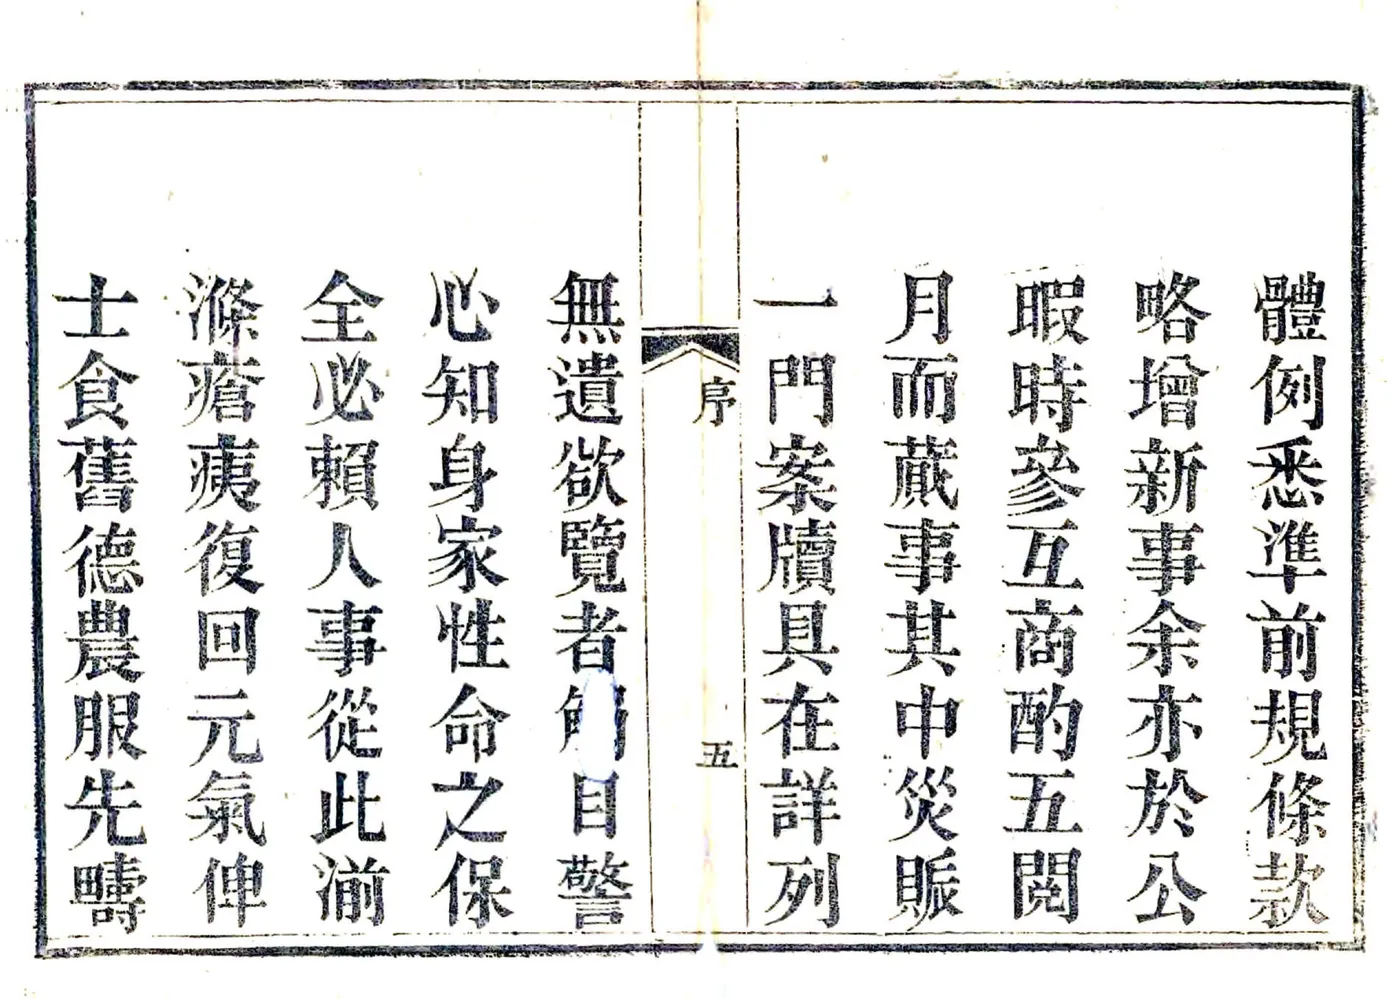 體例悉準前規條款
略增新事余亦於公
暇時參互商酌五閱
月而蕆事其中災賑
一門案牘具在詳列
序
五
無遺欲覽者觸目警
心知身家性命之保
全必賴人事從此湔
滌瘡痍復回元氣俾
士食舊德農服先疇